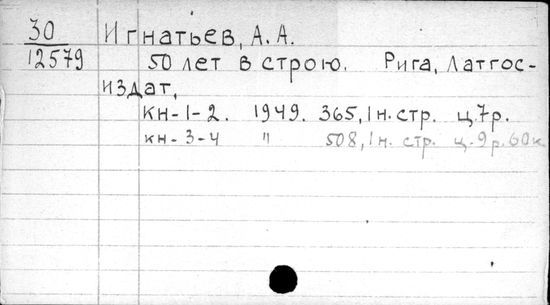 30 Игнатьев, А. А.
12579 50 лет в строю. Рига, Латгос-
издат,
кн-1-2. 1949. 365,1н.стр. ц.7р.
кн-3-4 " 508,1н.стр. ц.9р.60к